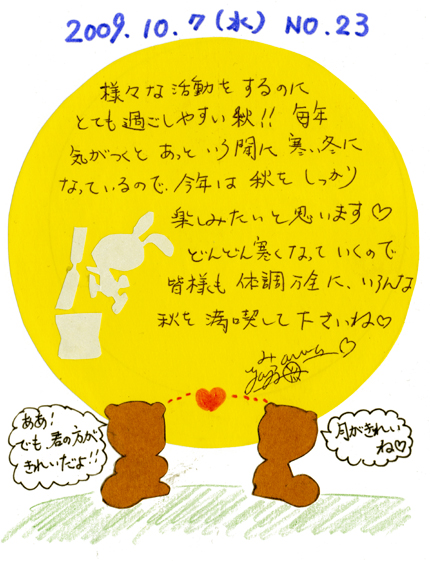 2009.10.7(水) NO.23
様々な活動をするのに
とても過ごしやすい秋!! 毎年
気がつくと あっという間に 寒い冬に
なっているので、今年は 秋を しっかり
楽しみたいと思います♡
どんどん寒くなって いくので
皆様も 体調万全に、いろんな
秋を 満喫して下さいね♡
ああ!
でも 君の方が
きれいだよ!!
月がきれい
ね♡